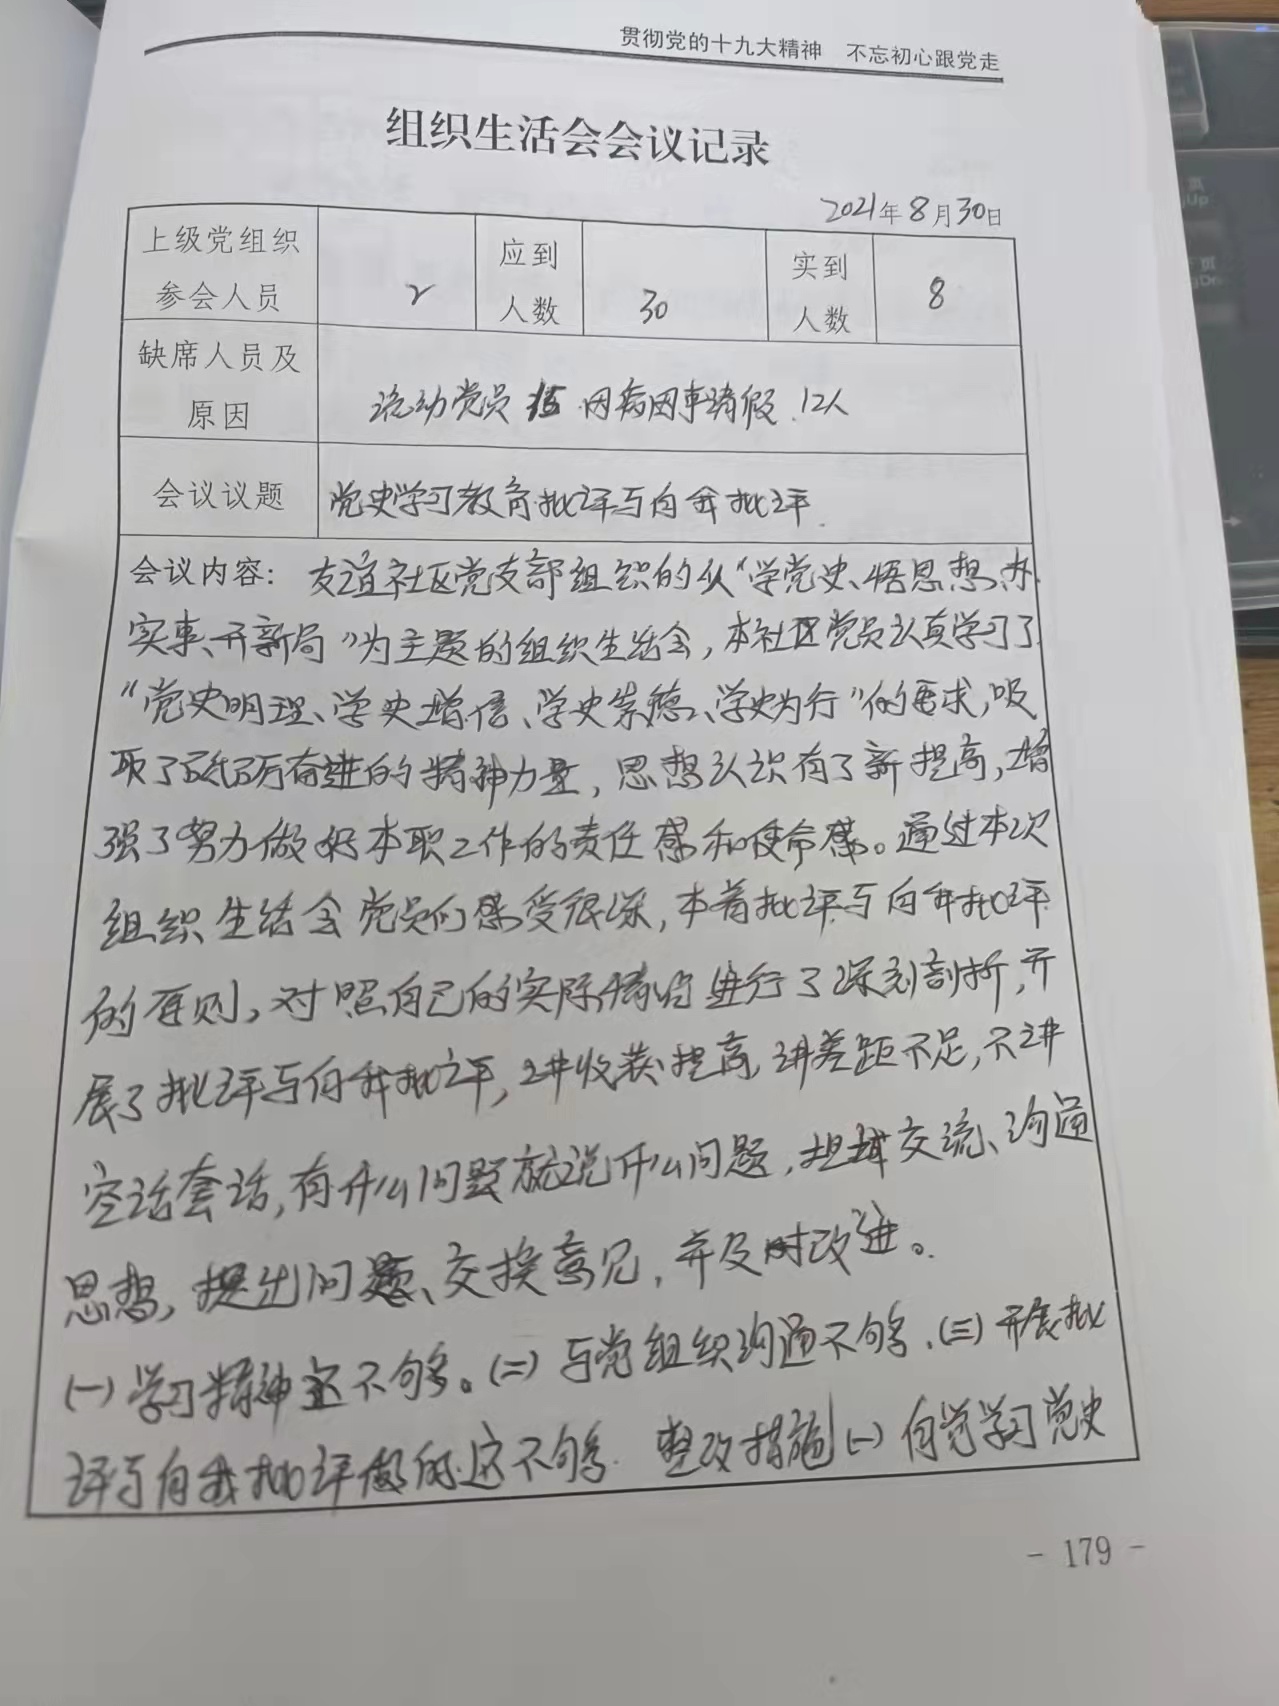 贯彻党的十九大精神 不忘初心跟党走
组织生活会会议记录
2021年8月30日
上级党组织参会人员 2 应到人数 30 实到人数 8
缺席人员及原因 流动党员 因病因事请假.12人
会议议题 党史学习教育批评与自我批评.
会议内容：友谊社区党支部组织的以“学党史、悟思想、办
实事、开新局”为主题的组织生活会，本社区党员认真学习了
“党史明理、学史增信、学史崇德、学史为行”的要求，吸
取了砥砺奋进的精神力量，思想认识有了新提高，增
强了努力做好本职工作的责任感和使命感。通过本次
组织生活会党员们感受很深，本着批评与自我批评
的原则，对照自己的实际情况进行了深刻剖折，开
展了批评与自我批评，讲收获提高，讲差距不足，不讲
空话套话，有什么问题就说什么问题，坦诚交流、沟通
思想，提出问题、交换意见，并及时改进。
(一)学习精神还不够。(二)与党组织沟通不够.(三)开展批
评与自我批评做的还不够. 整改措施(一)自觉学习党史
- 179 -